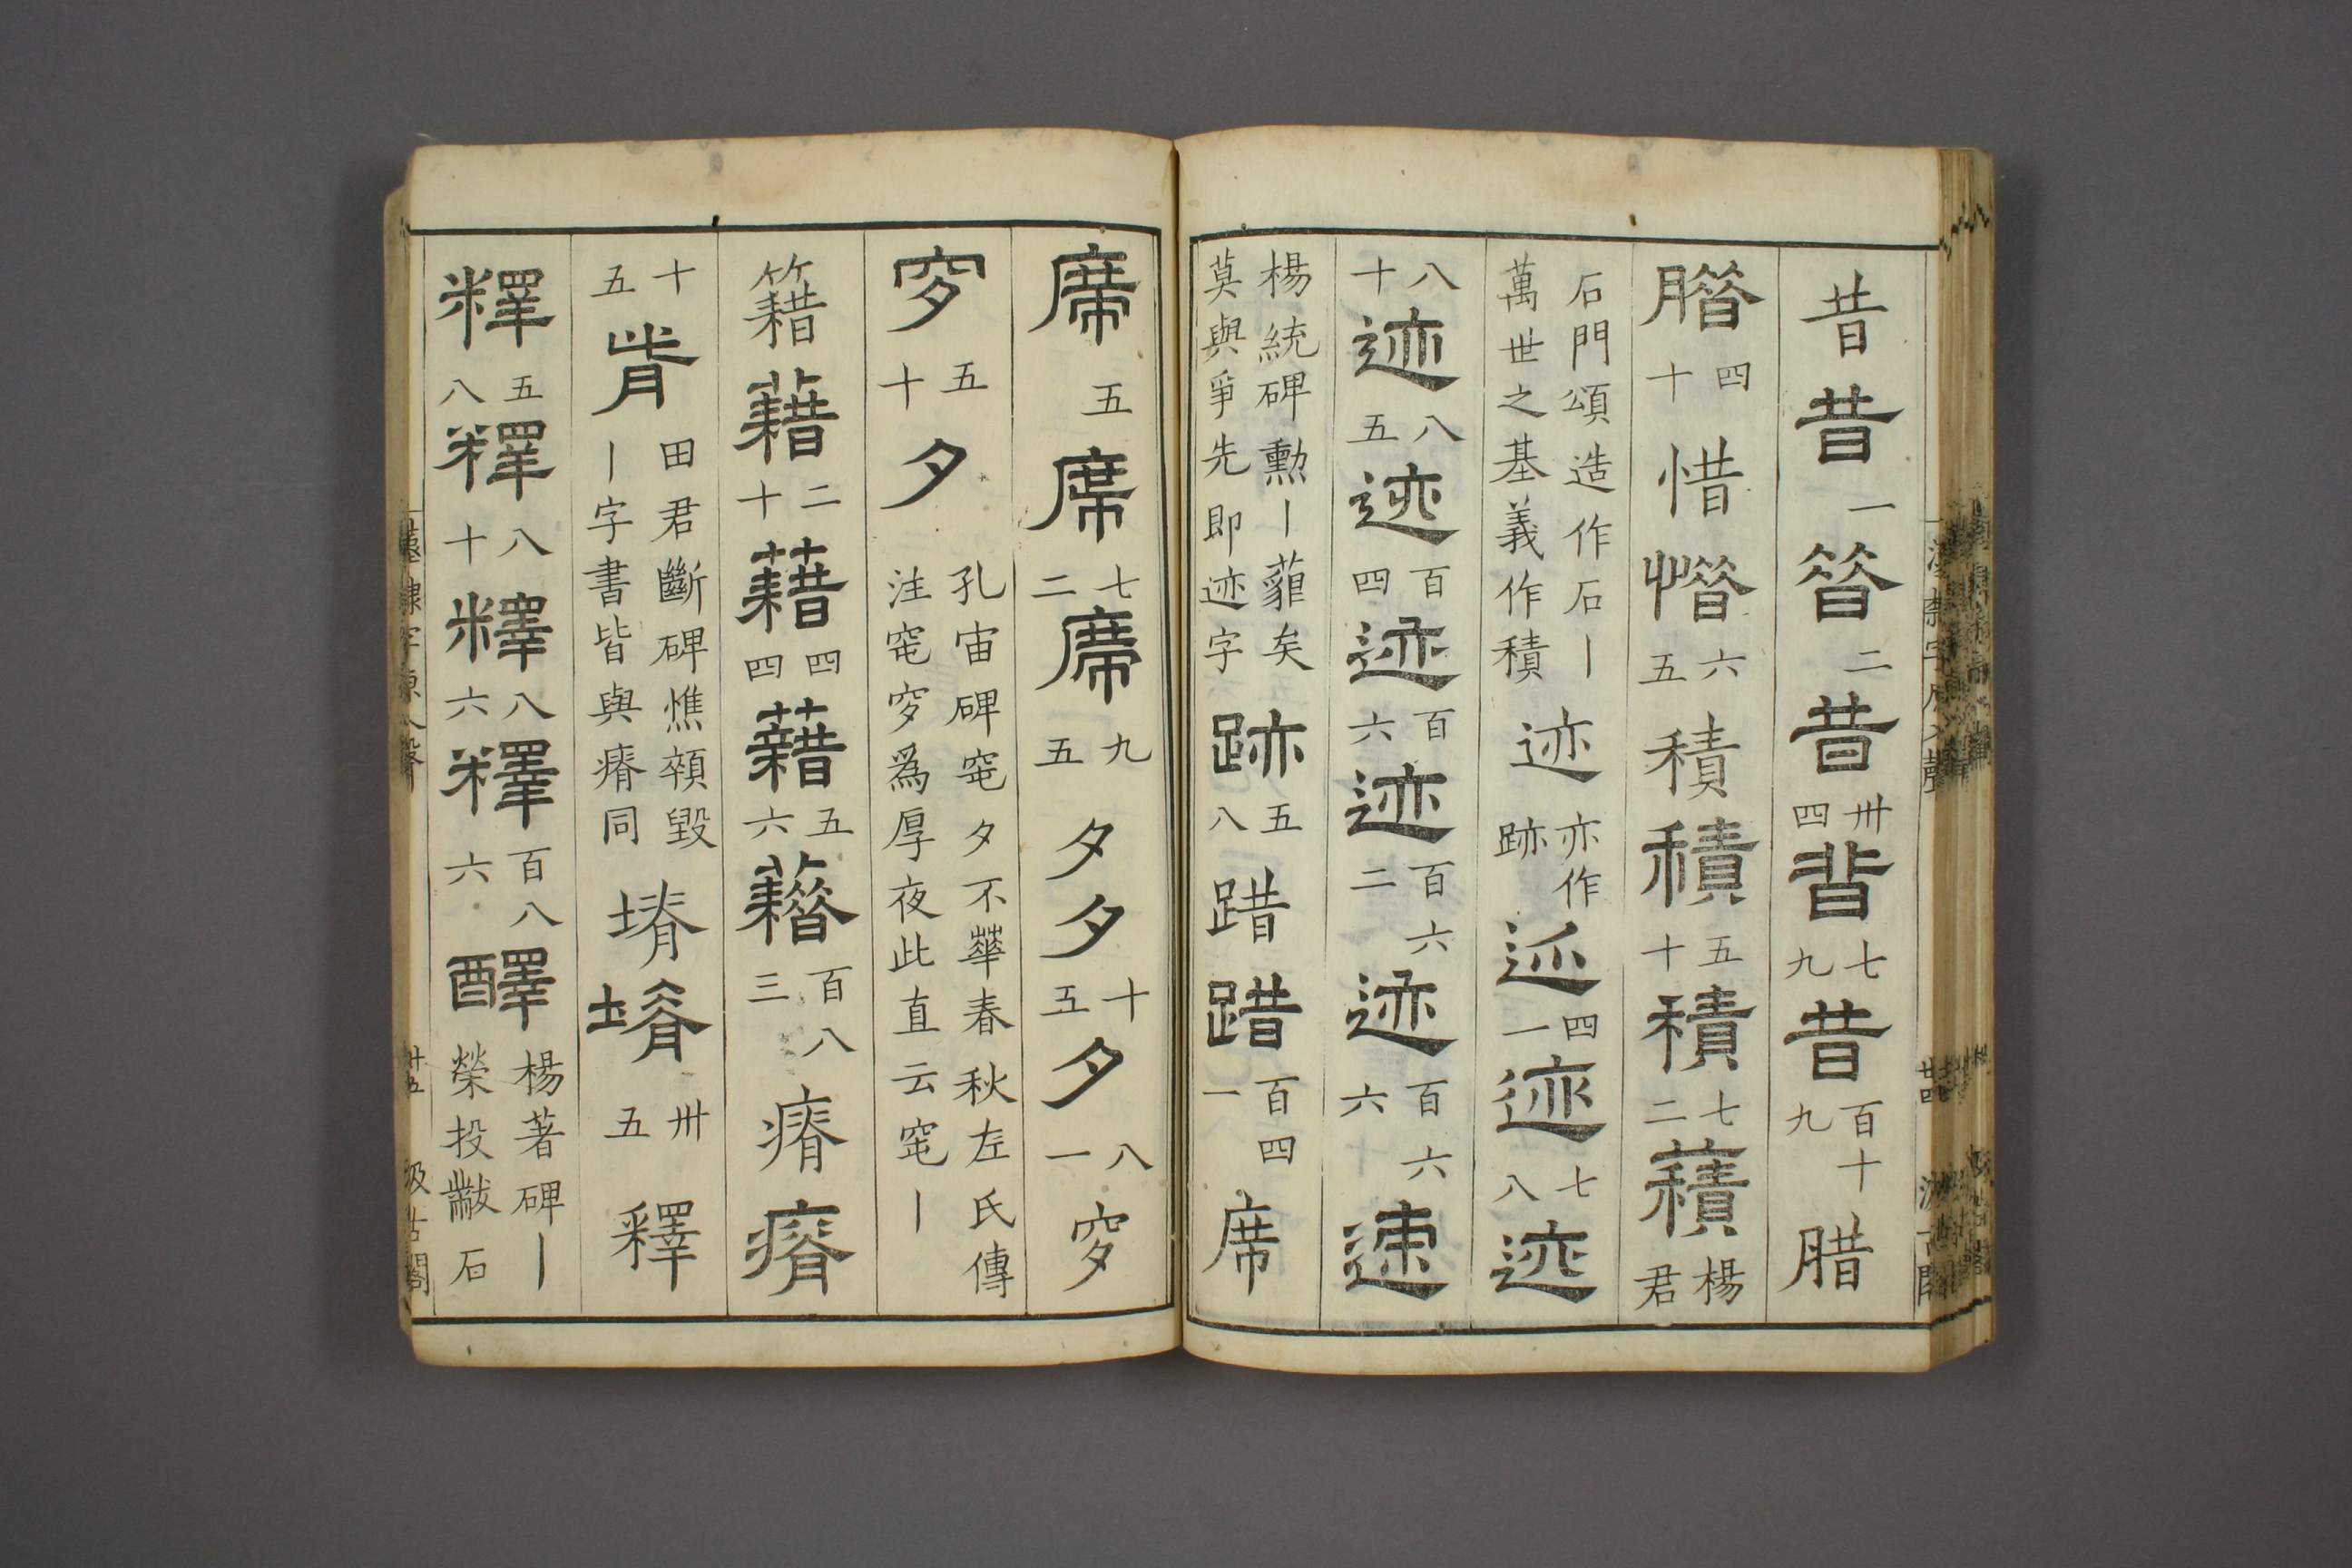 昔昔一昝二昔卅四㫺七九昔百十九腊
腊四十惜惜六五積積五十積七二蘱楊君
石門頌造作石丨萬世之基義作積迹亦作跡迹四一迹七八迹
八十迹八五迹百四迹百六迹百六二迹百六六速
楊統碑勲丨蘿矣莫與爭先即迹字跡五八踖踖百四一席
席五席七二席九五夕夕十五夕八一穸
穸五十夕孔宙碑窀夕不華春秋左氏傳注窀穸爲厚夜此直云窀丨
籍藉二十藉四四藉五六藉百八三瘠瘠
十五膌田君斷碑憔顇毀丨字書皆與瘠同塉塉卅五釋
釋五八釋八十釋八六釋百八六醳楊著碑丨榮投黻石
漢隷字源入聲
廿五
汲古閣
廿四